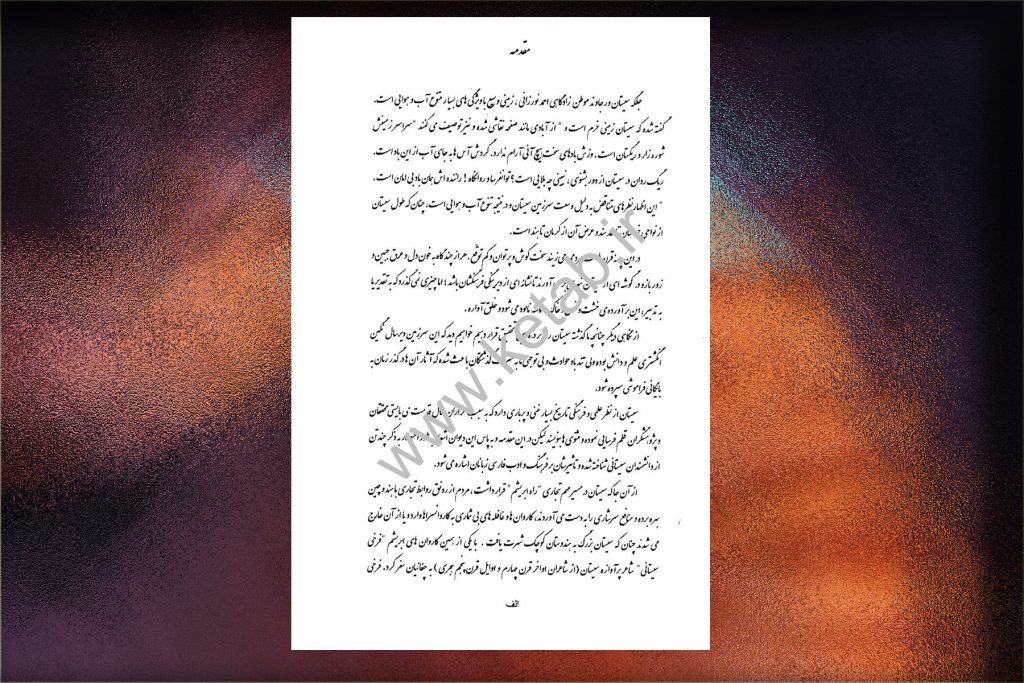 مقدمه
جلگه سیستان در جاوند موطن زادگاهی احمد نورزائی، زمینی وسیع با ویژگی های بسیار متنوع آب و هوایی است.
گفته شده که سیستان زمینی خرم است و " از آبادی مانند صفحه نقاشی شده و نیز توصیف می کنند "سراسر زمینش
شوره زار و ریگستان است. وزش بادهای سخت هیچ آنی آرام ندارد. گردش آس ها به جای آب از این باد است.
ریگ روان در سیستان از دور بشنوی، نبینی چه بلایی است؟ توانفرسا و روانکاه! راننده اش همان باد بی امان است.
" این اظهار نظرهای متناقض به دلیل وسعت سرزمین سیستان و در نتیجه تنوع آب و هوایی است، چنان که طول سیستان
از نواحی و عرض آن از کرمان تا هند است.
در این می زیند سخت کوش و پر توان و کم توقع. هر از چند گاه به خون دل و عرق جبین و
زور بازو در گوشه ای از سیستان آورند تا نشانه ای از دیرینگی فرهنگشان باشد؛ اما چیزی نمی گذرد که به تقدیر یا
به تدبیر، این بر آورده ی خشت و نابود می شود و خلق آواره.
از نگاهی دیگر چنانچه گذشته سیستان را تحقیق قرار دهیم خواهیم دید که این سرزمین دیر سال نگین
انگشتری علم و دانش بوده ولی تند باد حوادث و بی توجهی ما به گذشتگان باعث شده که آثار آن ها در گذر زمان به
بایگانی فراموشی سپرده شود.
سیستان از نظر علمی و فرهنگی تاریخ بسیار غنی و پرباری دارد که به سبب هزاران سال قدمت می بایستی محققان
و پژوهشگران قلم فرسایی نموده و مثنوی ها بنویسند لیکن در این مقدمه و به پاس این دیوان به ذکر چند تن
از دانشمندان سیستانی شناخته شده و تأثیرشان بر فرهنگ و ادب فارسی زبانان اشاره می شود.
از آن جا که سیستان در مسیر مهم تجاری "راه ابریشم" قرار داشت، مردم از رونق روابط تجاری با هند و چین
بهره برده و منافع سرشاری را به دست می آوردند، کاروان ها و قافله های بی شماری به کاروانسراها وارد و یا از آن خارج
می شدند چنان که سیستان بزرگ به هندوستان کوچک شهرت یافت. با یکی از همین کاروان های ابریشم "فرخی
سیستانی" شاعر پر آوازه سیستان (از شاعران اواخر قرن چهارم و اوایل قرن پنجم هجری) به چغانیان سفر کرد. فرخی
الف
www.ketab.ir